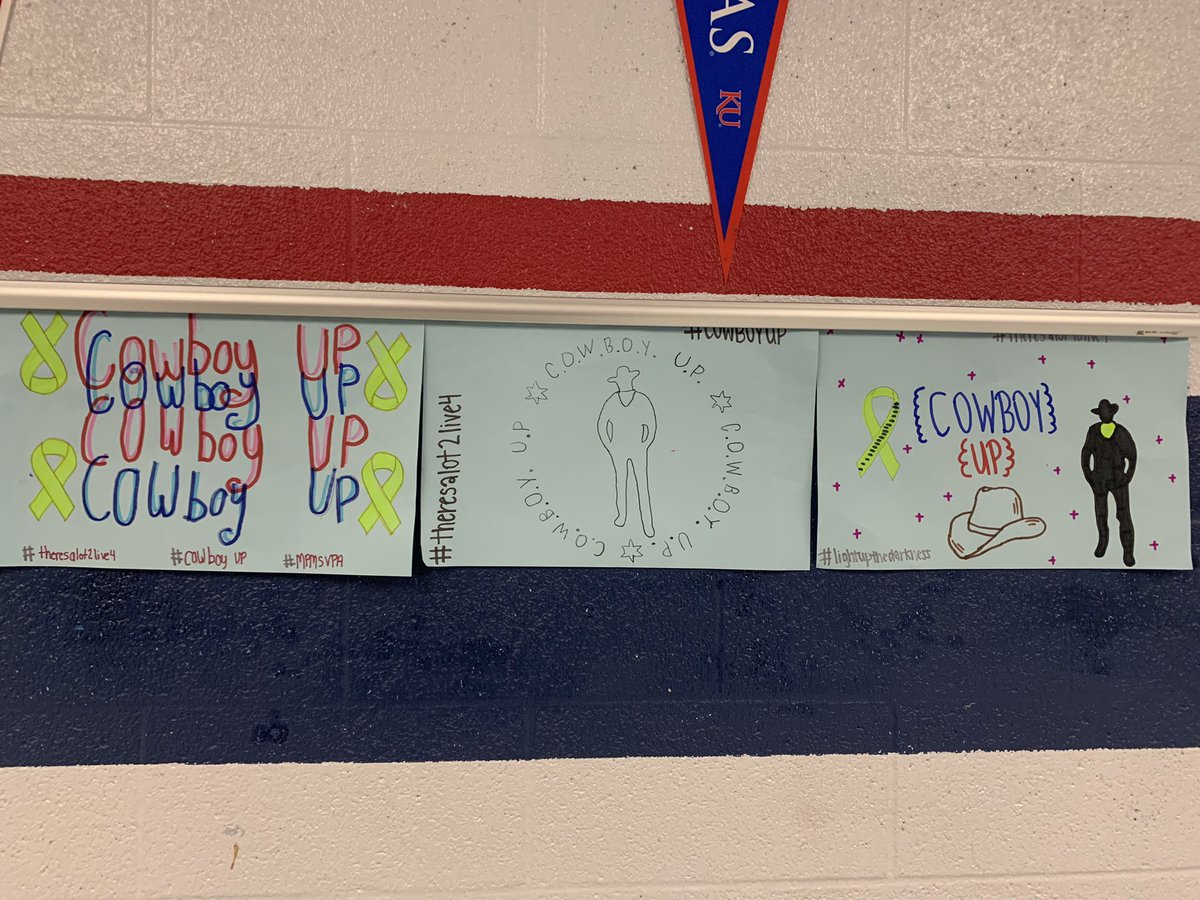 AS
KU
Cowboy UP
Cowboy UP
Cowboy UP
Cowboy UP
#theresalot2live4
#Cowboy UP
#MPMSVPA
#COWBOYUP
#theresalot2live4
C.O.W.B.O.Y. U.P.
C.O.W.B.O.Y. U.P.
C.O.W.B.O.Y. U.P
{COWBOY}
{UP}
#lightupthedarkness